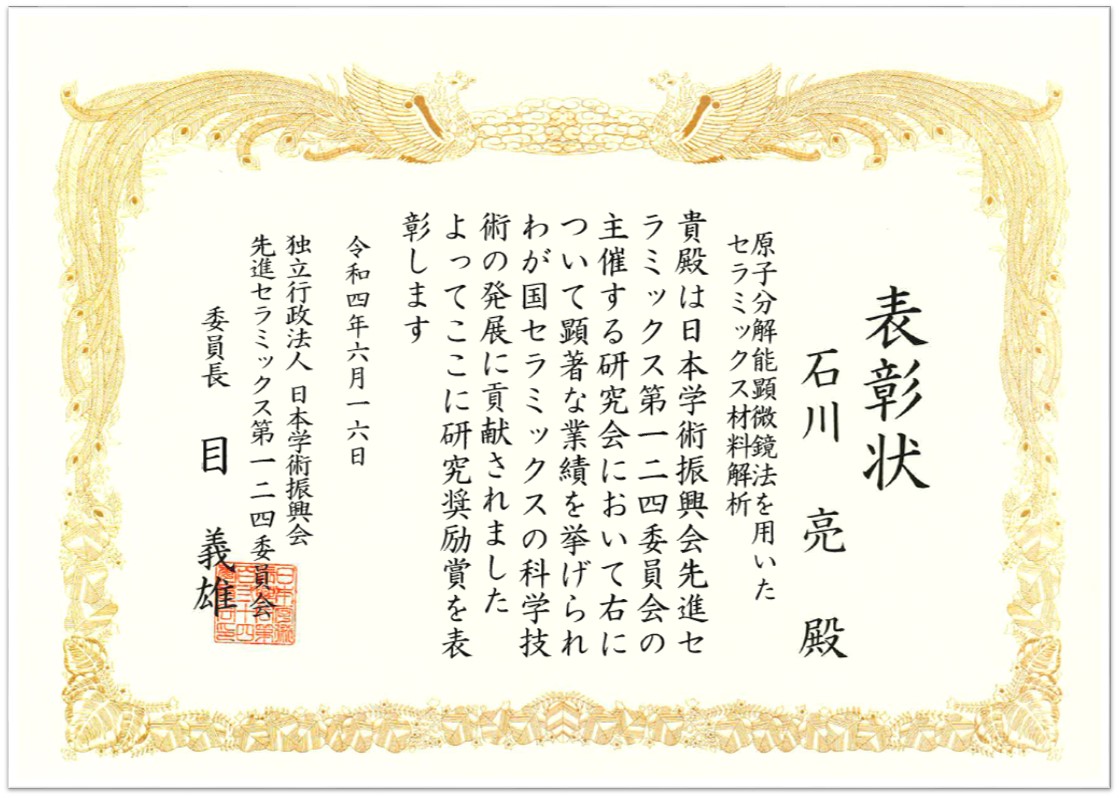 表彰状
石川 亮 殿
原子分解能顕微鏡法を用いた
セラミックス材料解析
貴殿は日本学術振興会先進セ
ラミックス第一二四委員会の
主催する研究会において右に
ついて顕著な業績を挙げられ
わが国セラミックスの科学技
術の発展に貢献されました
よってここに研究奨励賞を表
彰します
令和四年六月一六日
独立行政法人 日本学術振興会
先進セラミックス第一二四委員会
委員長 目 義雄